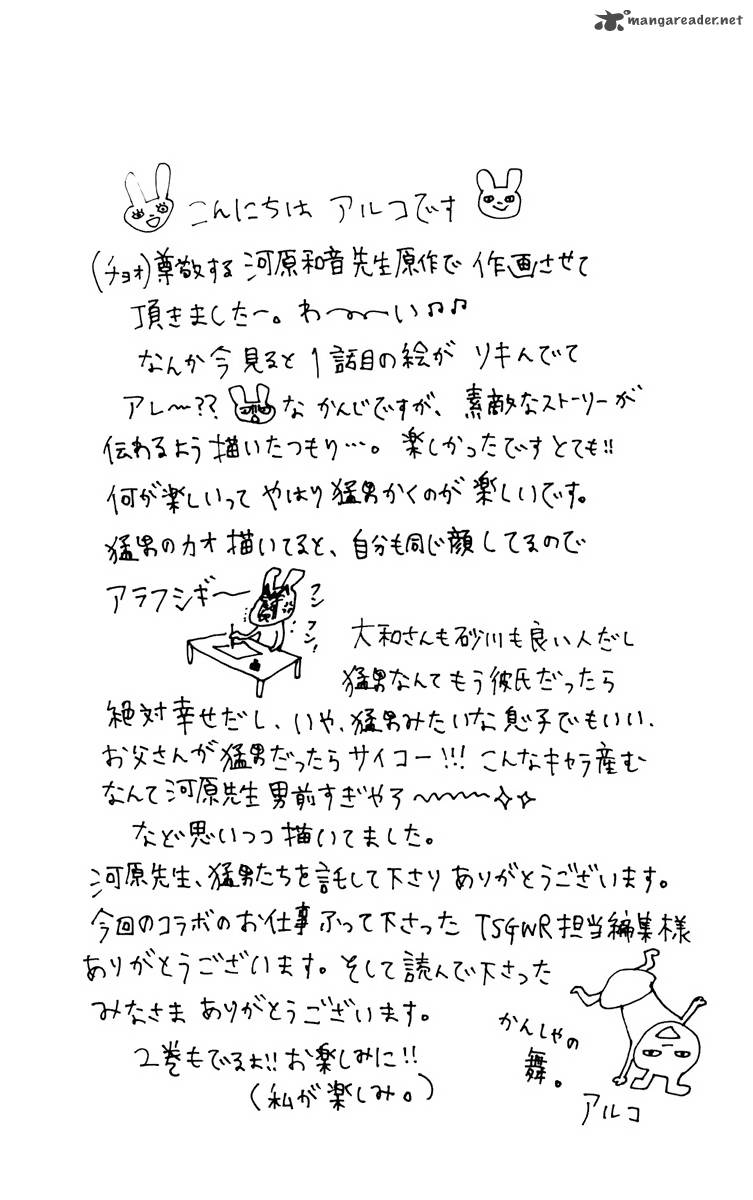 mangareader.net
こんにちは アルコです
(チョオ)尊敬する 河原和音先生原作で 作画させて
頂きました〜。わ〜〜い♪♪
なんか今見ると 1話目の絵が リキんでて
アレ〜?? な かんじですが、素敵なストーリーが
伝わるよう描いたつもり…。楽しかったです とても!!
何が楽しいって やはり猛男かくのが 楽しいです。
猛男のカオ描いてると、自分も同じ顔してるので
アラフシギ〜
フンフン!
大和さんも砂川も良い人だし
猛男なんてもう彼氏だったら
絶対幸せだし、いや、猛男みたいな息子でもいい、
お父さんが猛男だったらサイコー!!! こんなキャラ産む
なんて河原先生男前すぎやろ〜〜〜
など思いつつ描いてました。
河原先生、猛男たちを託して下さり ありがとうございます。
今回のコラボのお仕事ふって下さった TSGWR担当編集様
ありがとうございます。そして読んで下さった
みなさま ありがとうございます。
かんしゃの
舞。
2巻もでるよ!! お楽しみに!!
(私が楽しみ。)
アルコ